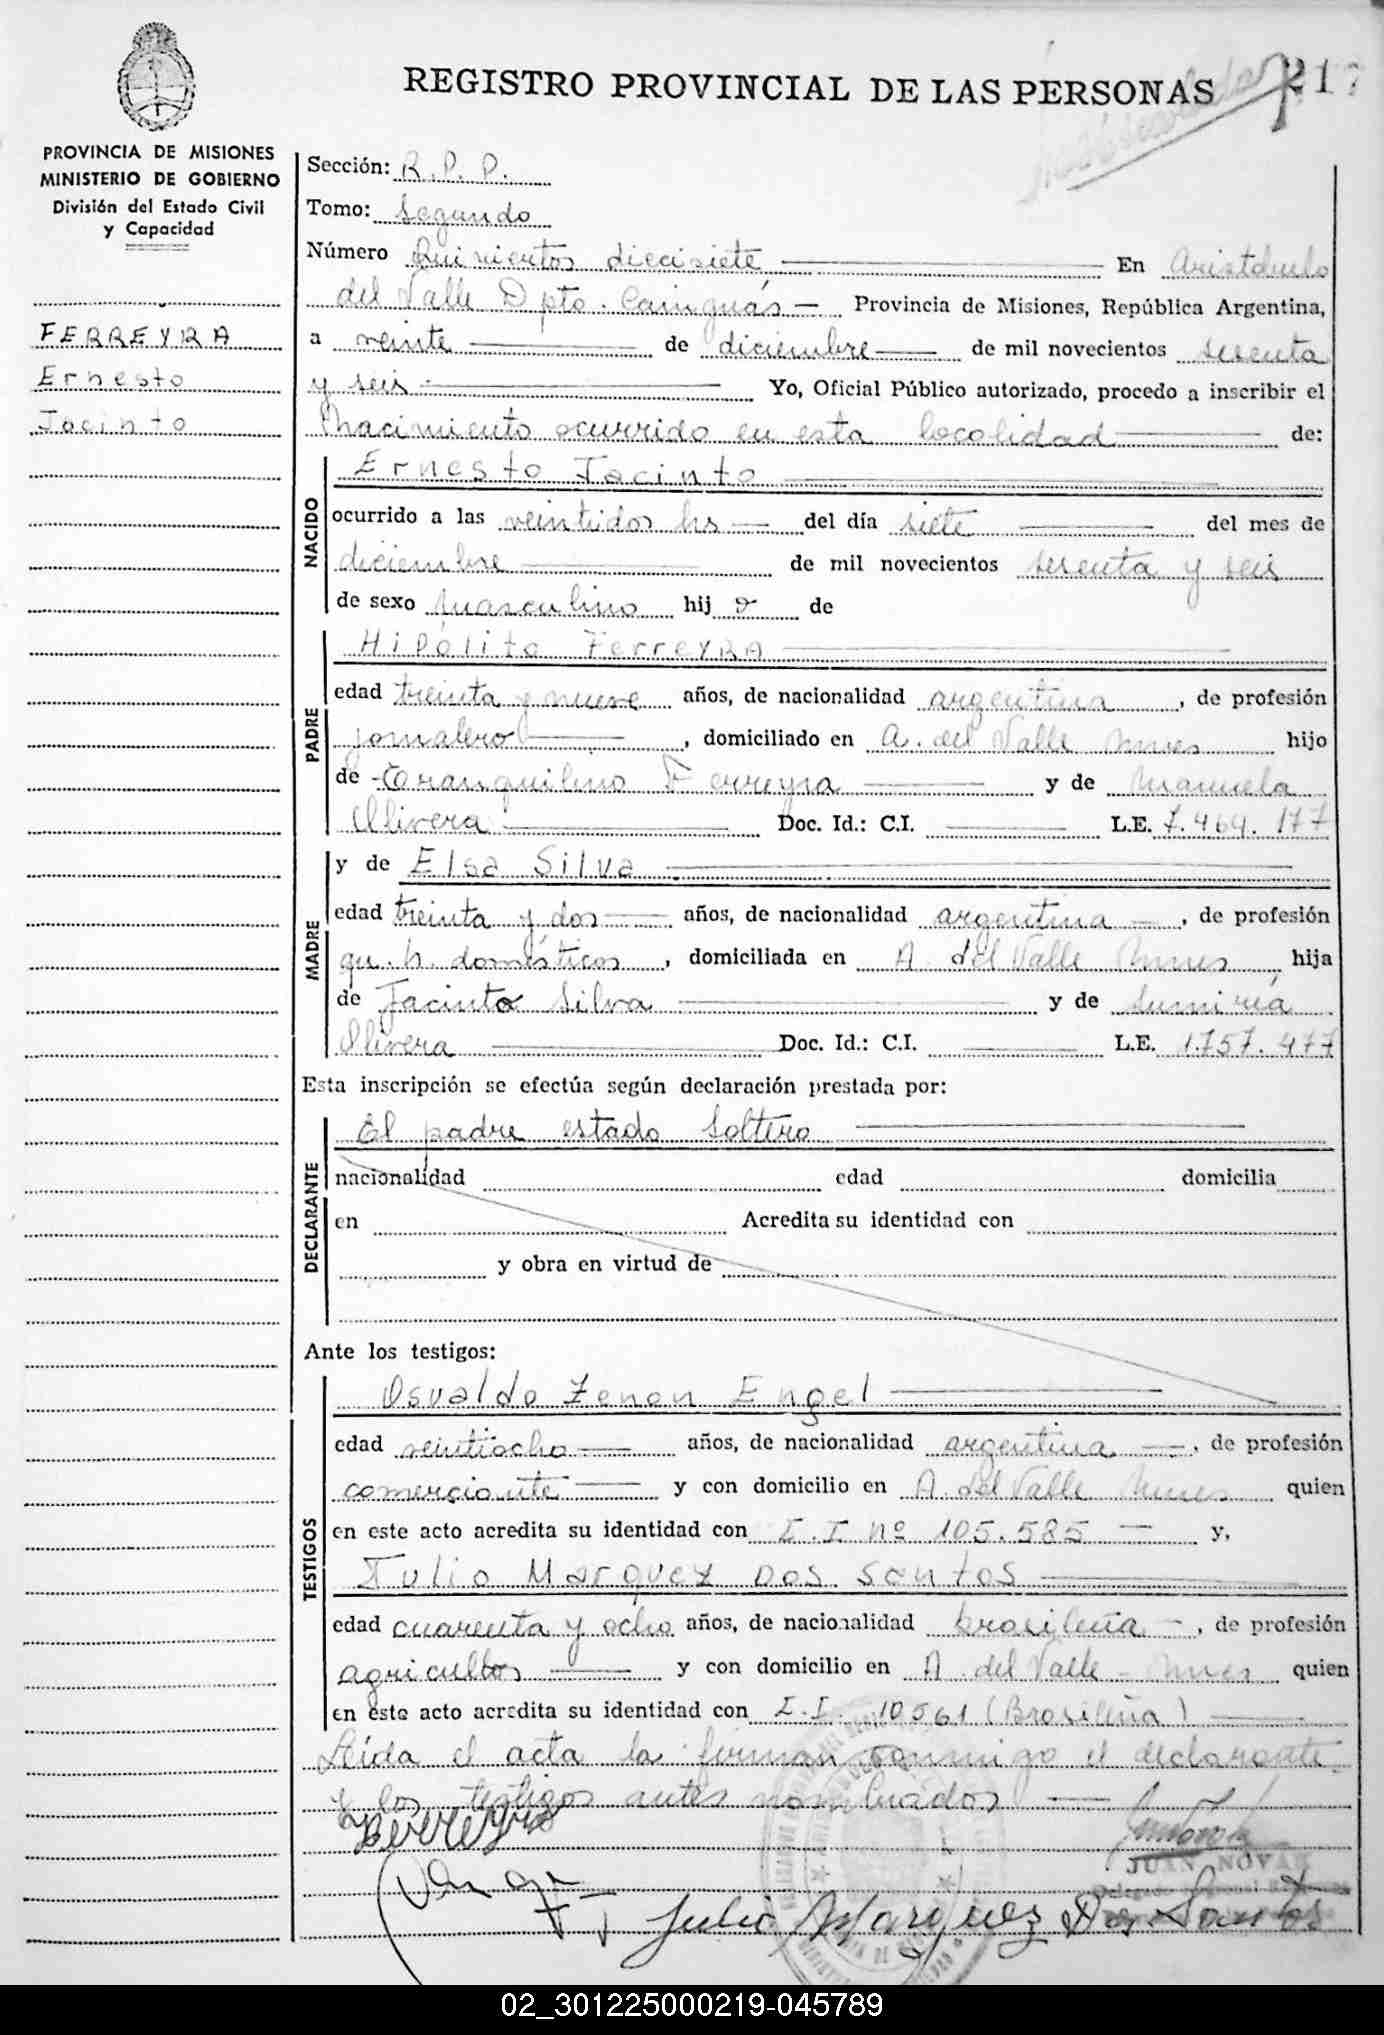 REGISTRO PROVINCIAL DE LAS PERSONAS
217
PROVINCIA DE MISIONES
MINISTERIO DE GOBIERNO
División del Estado Civil
y Capacidad
FERREYRA
Ernesto
Jacinto
Sección: R.P.P.
Tomo: Segundo
Número Quinientos diecisiete En Aristóbulo
del Valle Dpto. Cainguás — Provincia de Misiones, República Argentina,
a veinte de diciembre de mil novecientos sesenta
y seis Yo, Oficial Público autorizado, procedo a inscribir el
Nacimiento ocurrido en esta localidad de:
NACIDO
Ernesto Jacinto
ocurrido a las veintidos hs del día siete del mes de
diciembre de mil novecientos sesenta y seis
de sexo masculino hij o de
PADRE
Hipólito Ferreyra
edad treinta y nueve años, de nacionalidad argentina, de profesión
jornalero, domiciliado en A. del Valle Mnes hijo
de Tranquilino Ferreyra y de Manuela
Olivera Doc. Id.: C.I. L.E. 7.464.177
MADRE
y de Elsa Silva
edad treinta y dos años, de nacionalidad argentina, de profesión
qu. h. domésticos, domiciliada en A. del Valle Mnes hija
de Jacinto Silva y de
Olivera Doc. Id.: C.I. L.E. 1.757.477
Esta inscripción se efectúa según declaración prestada por:
DECLARANTE
El padre estado Soltero
nacionalidad edad domicilia
en Acredita su identidad con
y obra en virtud de
Ante los testigos:
TESTIGOS
Osvaldo Zenon Engel
edad veintiocho años, de nacionalidad argentina, de profesión
comerciante y con domicilio en A. del Valle Mnes quien
en este acto acredita su identidad con C.I. Nº 105.585 — y,
Julio Marquez Dos Santos
edad cuarenta y ocho años, de nacionalidad brasileña, de profesión
agricultor y con domicilio en A. del Valle - Mnes quien
en este acto acredita su identidad con C.I. 10561 (Brasileña)
Leída el acta la firman conmigo el declarante
y los testigos antes nombrados
Ferreyra
JUAN NOVAK
Julio Marquez Dos Santos
02_301225000219-045789